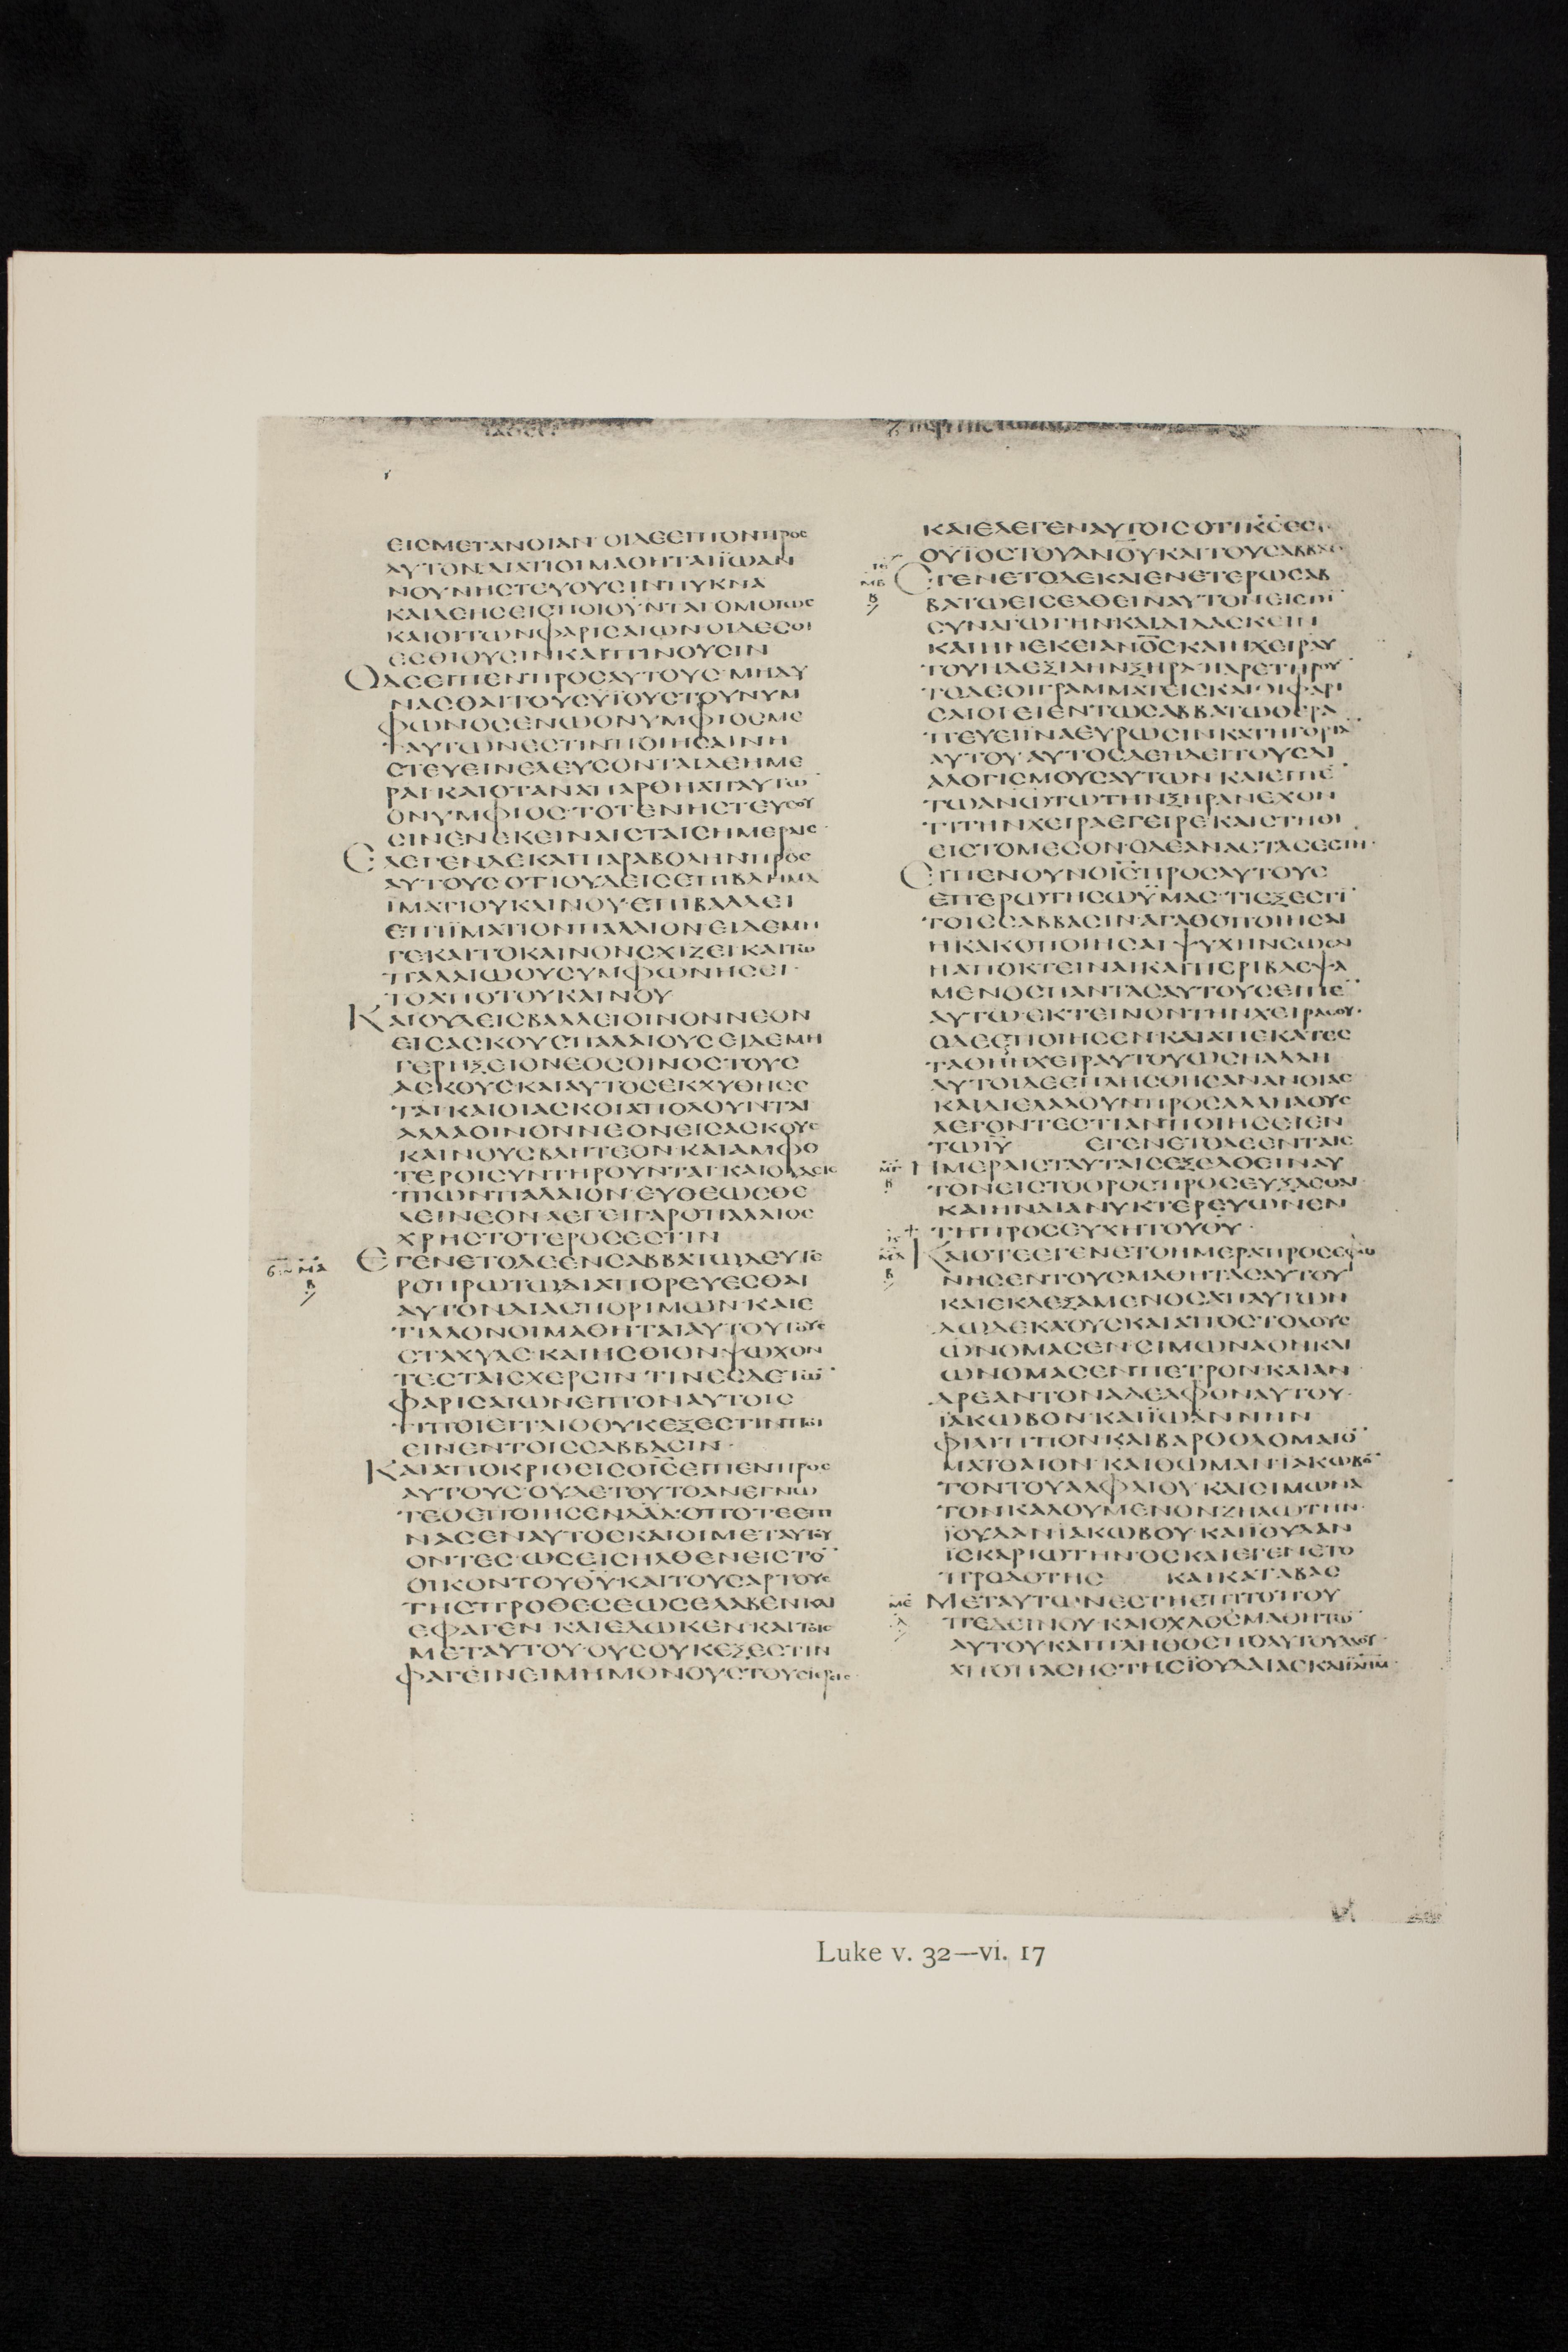 ΕΙCΜΕΤΑΝΟΙΑΝ· ΟΙΔΕΕΙΠΟΝΠΡΟC
ΑΥΤΟΝ ΔΙΑΤΙΟΙΜΑΘΗΤΑΙΪΩΑΝ
ΝΟΥΝΗCΤΕΥΟΥCΙΝΠΥΚΝΑ
ΚΑΙΔΕΗCΕΙCΠΟΙΟΥΝΤΑΙ ΟΜΟΙΩC
ΚΑΙΟΙΤΩΝΦΑΡΙCΑΙΩΝ ΟΙΔΕCΟΙ
ΕCΘΙΟΥCΙΝΚΑΙΠΙΝΟΥCΙΝ
ΟΔΕΕΙΠΕΝΠΡΟCΑΥΤΟΥC· ΜΗΔΥ
ΝΑCΘΑΙΤΟΥCΥΪΟΥCΤΟΥΝΥΜ
ΦΩΝΟCΕΝΩΟΝΥΜΦΙΟCΜΕ
ΤΑΥΤΩΝΕCΤΙΝΠΟΙΗCΑΙΝΗ
CΤΕΥΕΙΝΕΛΕΥCΟΝΤΑΙΔΕΗΜΕ
ΡΑΙ· ΚΑΙΟΤΑΝΑΠΑΡΘΗΑΠΑΥΤΩ̄
ΟΝΥΜΦΙΟC· ΤΟΤΕΝΗCΤΕΥCΟΥ
CΙΝΕΝΕΚΕΙΝΑΙCΤΑΙCΗΜΕΡΑΙC·
ΕΛΕΓΕΝΔΕΚΑΙΠΑΡΑΒΟΛΗΝΠΡΟC
ΑΥΤΟΥC ΟΤΙΟΥΔΕΙCΕΠΙΒΛΗΜΑ
ΪΜΑΤΙΟΥΚΑΙΝΟΥ· ΕΠΙΒΑΛΛΕΙ
ΕΠΙΪΜΑΤΙΟΝΠΑΛΑΙΟΝ· ΕΙΔΕΜΗ
ΓΕΚΑΙΤΟΚΑΙΝΟΝCΧΙΖΕΙ· ΚΑΙΤΩ
ΠΑΛΑΙΩΟΥCΥΜΦΩΝΗCΕΙ·
ΤΟΑΠΟΤΟΥΚΑΙΝΟΥ
ΚΑΙΟΥΔΕΙCΒΑΛΛΕΙΟΙΝΟΝΝΕΟΝ
ΕΙCΑCΚΟΥCΠΑΛΑΙΟΥC· ΕΙΔΕΜΗ
ΓΕΡΗΞΕΙΟΝΕΟCΟΙΝΟCΤΟΥC
ΑCΚΟΥCΚΑΙΑΥΤΟCΕΚΧΥΘΗCΕ
ΤΑΙ· ΚΑΙΟΙΑCΚΟΙΑΠΟΛΟΥΝΤΑΙ
ΑΛΛΑΟΙΝΟΝΝΕΟΝΕΙCΑCΚΟΥC
ΚΑΙΝΟΥCΒΛΗΤΕΟΝ· ΚΑΙΑΜΦΟ
ΤΕΡΟΙCΥΝΤΗΡΟΥΝΤΑΙ· ΚΑΙΟΥΔΕΙC
ΠΙΩΝΠΑΛΑΙΟΝ· ΕΥΘΕΩCΘΕ
ΛΕΙΝΕΟΝ· ΛΕΓΕΙΓΑΡΟΠΑΛΑΙΟC
ΧΡΗCΤΟΤΕΡΟCΕCΤΙΝ
ΕΓΕΝΕΤΟΔΕΕΝCΑΒΒΑΤΩΔΕΥΤΕ
ΡΟΠΡΩΤΩΔΙΑΠΟΡΕΥΕCΘΑΙ
ΑΥΤΟΝΔΙΑCΠΟΡΙΜΩΝ· ΚΑΙΕ
ΤΙΛΛΟΝΟΙΜΑΘΗΤΑΙΑΥΤΟΥΤΟΥC
CΤΑΧΥΑC· ΚΑΙΗCΘΙΟΝΨΩΧΟΝ
ΤΕCΤΑΙCΧΕΡCΙΝ· ΤΙΝΕCΔΕΤΩ̄
ΦΑΡΙCΑΙΩΝΕΙΠΟΝΑΥΤΟΙC
ΤΙΠΟΙΕΙΤΑΙΟΟΥΚΕΞΕCΤΙΝΠΟΙ
ΕΙΝΕΝΤΟΙCCΑΒΒΑCΙΝ·
ΚΑΙΑΠΟΚΡΙΘΕΙCΟῙC̄ΕΙΠΕΝΠΡΟC
ΑΥΤΟΥC· ΟΥΔΕΤΟΥΤΟΑΝΕΓΝΩ
ΤΕΟΕΠΟΙΗCΕΝΔᾹΔ̄· ΟΠΟΤΕΕΠΙ
ΝΑCΕΝΑΥΤΟCΚΑΙΟΙΜΕΤΑΥΤΟΥ
ΟΝΤΕC· ΩCΕΙCΗΛΘΕΝΕΙCΤΟ̄
ΟΙΚΟΝΤΟΥΘ̄Ῡ· ΚΑΙΤΟΥCΑΡΤΟΥC
ΤΗCΠΡΟΘΕCΕΩCΕΛΑΒΕΝ· ΚΑΙ
ΕΦΑΓΕΝ· ΚΑΙΕΔΩΚΕΝ· ΚΑΙΤΟΙC
ΜΕΤΑΥΤΟΥ· ΟΥCΟΥΚΕΞΕCΤΙΝ
ΦΑΓΕΙΝΕΙΜΗΜΟΝΟΥCΤΟΥCΙΕΡΕΙC·
ΚΑΙΕΛΕΓΕΝΑΥΤΟΙCΟΤΙΚ̄C̄ΕCΤΙ
ΟΥΪΟCΤΟΥΑΝΟ̄Ῡ· ΚΑΙΤΟΥCΑΒΒΑΤΟΥ
ΕΓΕΝΕΤΟΔΕΚΑΙΕΝΕΤΕΡΩCΑΒ
ΒΑΤΩΕΙCΕΛΘΕΙΝΑΥΤΟΝΕΙCΤΗ̄
CΥΝΑΓΩΓΗΝΚΑΙΔΙΔΑCΚΕΙΝ
ΚΑΙΗΝΕΚΕΙΑΝΟ̄C̄ΚΑΙΗΧΕΙΡΑΥ
ΤΟΥΗΔΕΞΙΑΗΝΞΗΡΑ· ΠΑΡΕΤΗΡΟῩ
ΤΟΔΕΟΙΓΡΑΜΜΑΤΕΙCΚΑΙΟΙΦΑΡΙ
CΑΙΟΙ· ΕΙΕΝΤΩCΑΒΒΑΤΩΘΕΡΑ
ΠΕΥΕΙΙΝΑΕΥΡΩCΙΝΚΑΤΗΓΟΡΙᾹ
ΑΥΤΟΥ· ΑΥΤΟCΔΕΗΔΕΙΤΟΥCΔΙ
ΑΛΟΓΙCΜΟΥCΑΥΤΩΝ· ΚΑΙΕΙΠΕ̄
ΤΩΑΝΩ̄ΤΩΤΗΝΞΗΡΑΝΕΧΟΝ
ΤΙΤΗΝΧΕΙΡΑΕΓΕΙΡΕΚΑΙCΤΗΘΙ
ΕΙCΤΟΜΕCΟΝ· ΟΔΕΑΝΑCΤΑCΕCΤΗ·
ΕΙΠΕΝΟΥΝΟῙC̄ΠΡΟCΑΥΤΟΥC
ΕΠΕΡΩΤΗCΩΫΜΑC· ΤΙCΞΕCΤῙ
ΤΟΙCCΑΒΒΑCΙΝ· ΑΓΑΘΟΠΟΙΗCΑΙ
ΗΚΑΚΟΠΟΙΗCΑΙ· ΨΥΧΗΝCΩCΑΙ
ΗΑΠΟΚΤΕΙΝΑΙ· ΚΑΙΠΕΡΙΒΛΕΨΑ
ΜΕΝΟCΠΑΝΤΑCΑΥΤΟΥCΕΙΠΕ̄
ΑΥΤΩ· ΕΚΤΕΙΝΟΝΤΗΝΧΕΙΡΑCΟΥ·
ΟΔΕΕΠΟΙΗCΕΝ· ΚΑΙΑΠΕΚΑΤΕC
ΤΑΘΗΗΧΕΙΡΑΥΤΟΥΩCΗΑΛΛΗ
ΑΥΤΟΙΔΕΕΠΛΗCΘΗCΑΝΑΝΟΙΑC
ΚΑΙΔΙΕΛΑΛΟΥΝΠΡΟCΑΛΛΗΛΟΥC
ΛΕΓΟΝΤΕCΤΙΑΝΠΟΙΗCΕΙΕΝ
ΤΩῙῩ ΕΓΕΝΕΤΟΔΕΕΝΤΑΙC
ΗΜΕΡΑΙCΤΑΥΤΑΙCΕΞΕΛΘΕΙΝΑΥ
ΤΟΝΕΙCΤΟΟΡΟCΠΡΟCΕΥΞΑCΘΑΙ·
ΚΑΙΗΝΔΙΑΝΥΚΤΕΡΕΥΩΝΕΝ
ΤΗΠΡΟCΕΥΧΗΤΟΥΘ̄Ῡ·
ΚΑΙΟΤΕΕΓΕΝΕΤΟΗΜΕΡΑΠΡΟCΕΦΩ
ΝΗCΕΝΤΟΥCΜΑΘΗΤΑCΑΥΤΟΥ
ΚΑΙΕΚΛΕΞΑΜΕΝΟCΑΠΑΥΤΩΝ
ΔΩΔΕΚΑΟΥCΚΑΙΑΠΟCΤΟΛΟΥC
ΩΝΟΜΑCΕΝ· CΙΜΩΝΑΟΝΚΑΙ
ΩΝΟΜΑCΕΝΠΕΤΡΟΝ· ΚΑΙΑΝ
ΔΡΕΑΝΤΟΝΑΔΕΛΦΟΝΑΥΤΟΥ·
ΪΑΚΩΒΟΝ· ΚΑΙΪΩΑΝΝΗΝ
ΦΙΛΙΠΠΟΝΚΑΙΒΑΡΘΟΛΟΜΑΙΟ̄
ΜΑΤΘΑΙΟΝ· ΚΑΙΘΩΜΑΝ· ΪΑΚΩΒΟ̄
ΤΟΝΤΟΥΑΛΦΑΙΟΥ· ΚΑΙCΙΜΩΝΑ
ΤΟΝΚΑΛΟΥΜΕΝΟΝΖΗΛΩΤΗΝ·
ΪΟΥΔΑΝΪΑΚΩΒΟΥ· ΚΑΙΪΟΥΔΑΝ
ΪCΚΑΡΙΩΤΗΝ· ΟCΚΑΙΕΓΕΝΕΤΟ
ΠΡΟΔΟΤΗC ΚΑΙΚΑΤΑΒΑC
ΜΕΤΑΥΤΩΝΕCΤΗΕΠΙΤΟΠΟΥ
ΠΕΔΕΙΝΟΥ· ΚΑΙΟΧΛΟCΜΑΘΗΤΩ̄
ΑΥΤΟΥΚΑΙΠΛΗΘΟCΠΟΛΥΤΟΥΛΑΟΥ
ΑΠΟΠΑCΗCΤΗCΪΟΥΔΑΙΑCΚΑΙΪΛ̄Η̄Μ̄·
Luke v. 32—vi. 17